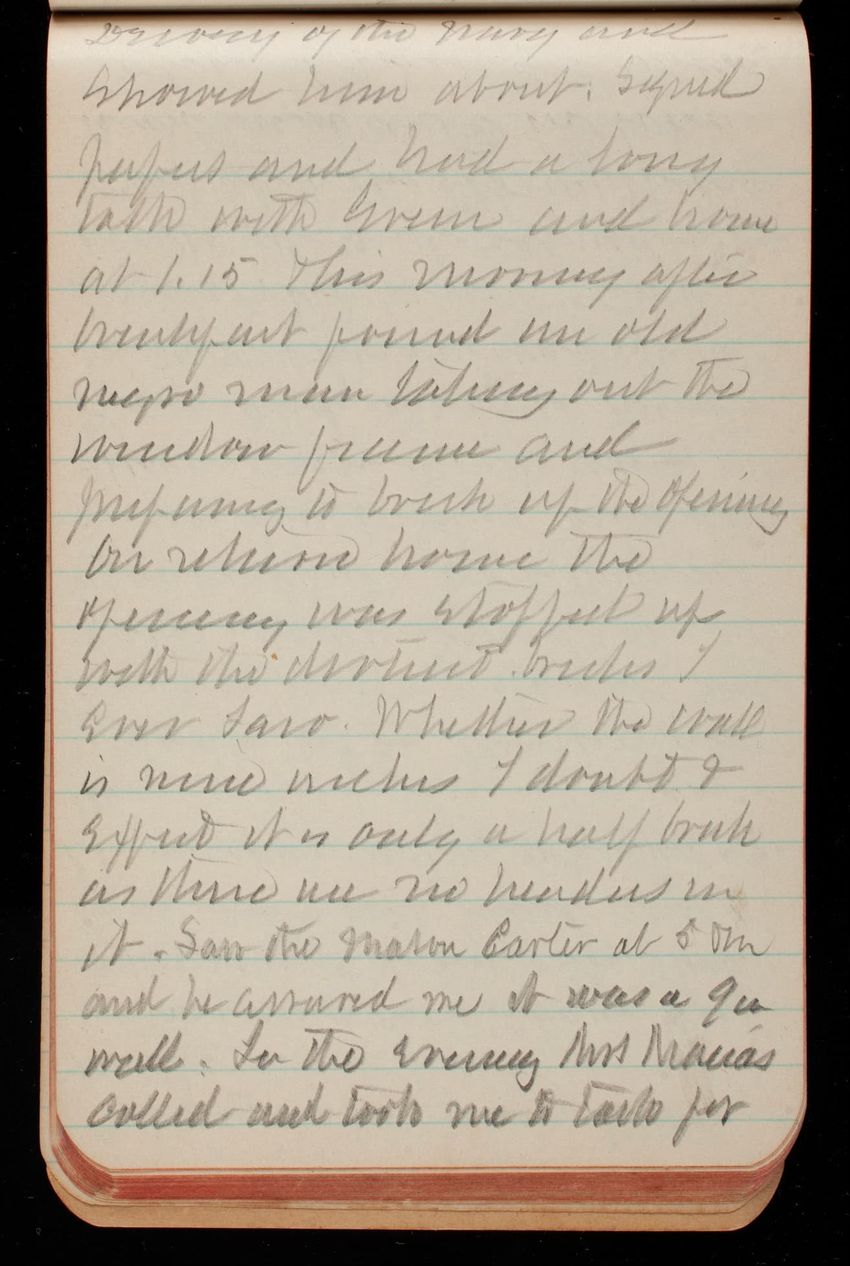 of the Navy and
Showed him about. Signed
papers and had a long
talk with Green and home
at 1.15 This morning after
breakfast found an old
negro man taking out the
window frame and
preparing to brick up the opening
On return home the
opening was stopped up
with the bricks I
Ever Saw. Whether the wall
is nine inches I doubt &
Expect it is only a half brick
as there are no headers in
it. Saw the Mason Carter at 5 Pm
and he assured me it was a 9in
wall. In the Evening Mrs
Called and took me to task for